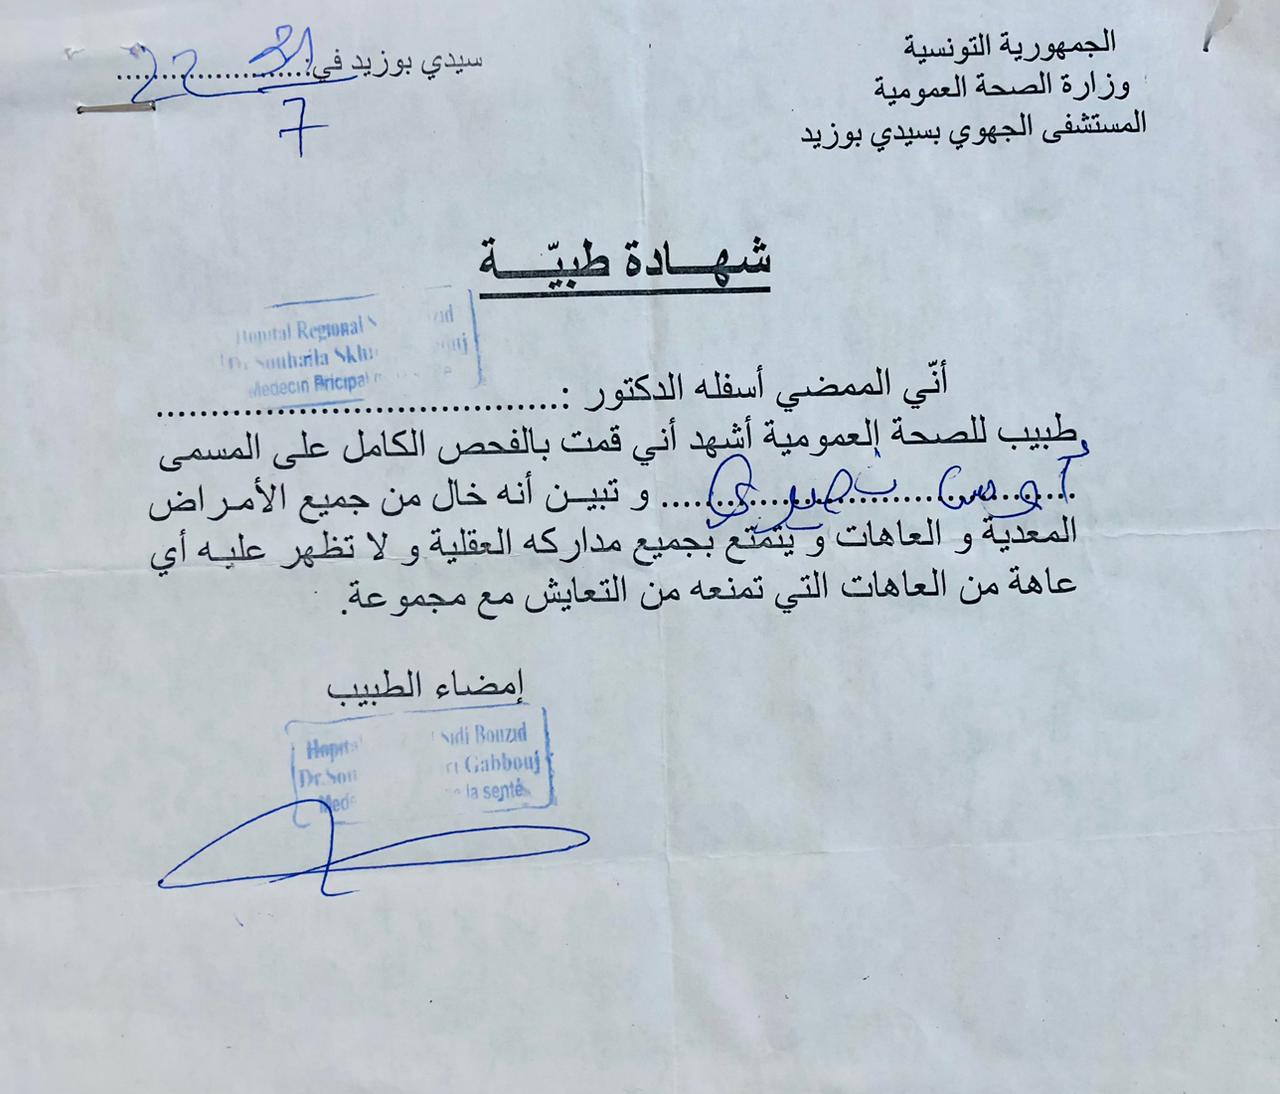 الجمهورية التونسية
وزارة الصحة العمومية
المستشفى الجهوي بسيدي بوزيد
سيدي بوزيد في:
7
شهادة طبيّة
Hopital Regional
Dr. Souhaila
Medecin Pricipal
أنّي الممضي أسفله الدكتور :
طبيب للصحة العمومية أشهد أني قمت بالفحص الكامل على المسمى
و تبين أنه خال من جميع الأمراض
المعدية و العاهات و يتمتع بجميع مداركه العقلية و لا تظهر عليه أي
عاهة من العاهات التي تمنعه من التعايش مع مجموعة.
إمضاء الطبيب
Sidi Bouzid
Gabbouj
la senté